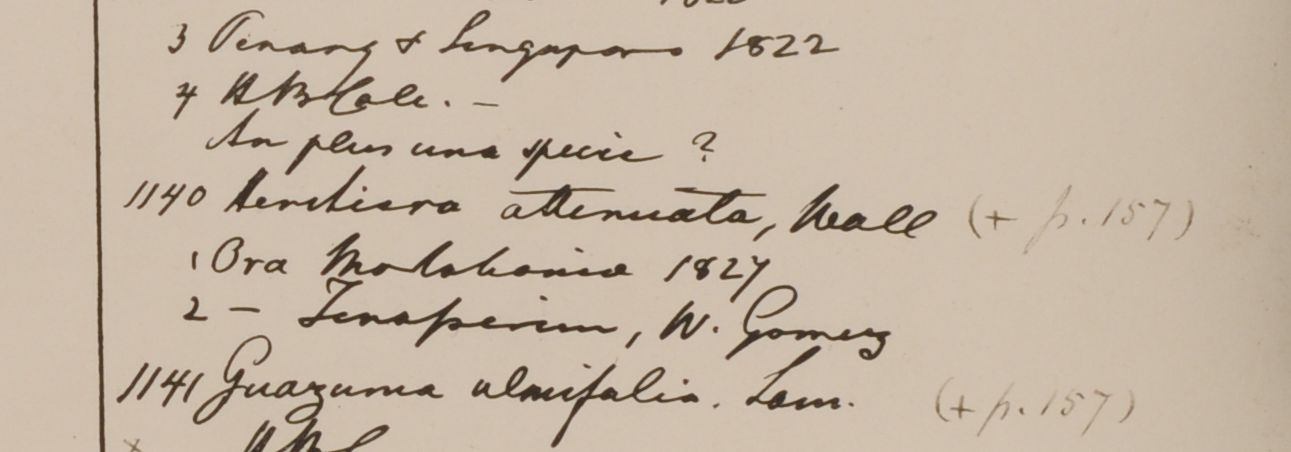 3 Penang & Singapore 1822
4 H B Calc. –
An plus una specie ?
1140 Heritiera attenuata, Wall (+ p. 157)
1 Ora Malabarica 1827
2 – Tenasserim, W. Gomez
1141 Guazuma ulmifolia. Lam. (+ p. 157)
x H B C